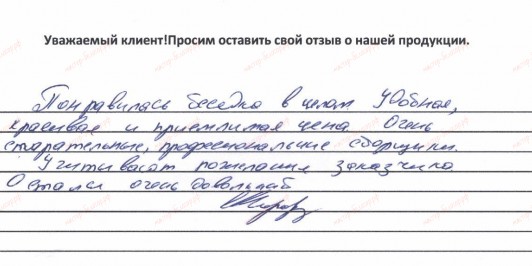 Уважаемый клиент!Просим оставить свой отзыв о нашей продукции.
Понравилась беседка в целом удобная,
красивая и приемлимая цена Очень
старательные, профессиональные сборщики.
Учитывают пожелания заказчика
Остались очень довольный